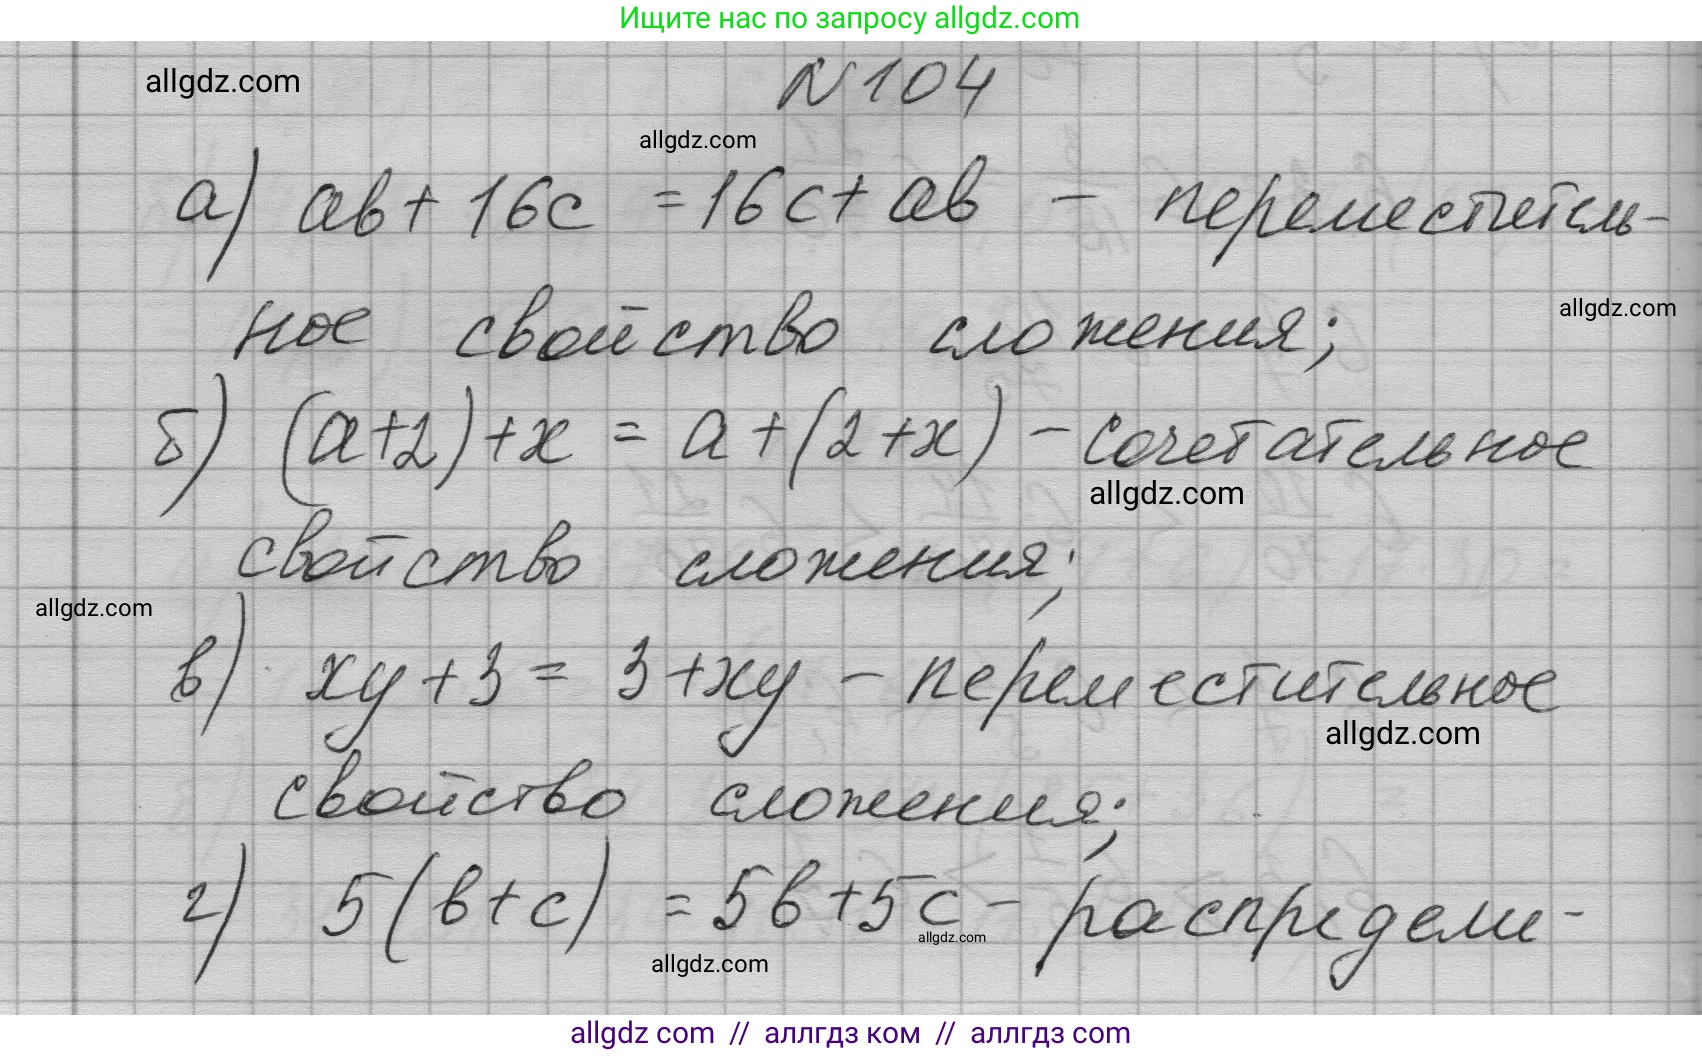 Ищите нас по запросу allgdz.com
allgdz.com
N 104
allgdz.com
а) ab + 16c = 16c + ab – переместитель-
ное свойство сложения;
allgdz.com
б) (a+2)+x = a+(2+x) – сочетательное
allgdz.com
свойство сложения;
allgdz.com
в) xy + 3 = 3 + xy – переместительное
allgdz.com
свойство сложения;
г) 5(b+c) = 5b+5c – распредели-
allgdz.com
allgdz.com
allgdz com // аллгдз ком // аллгдз com